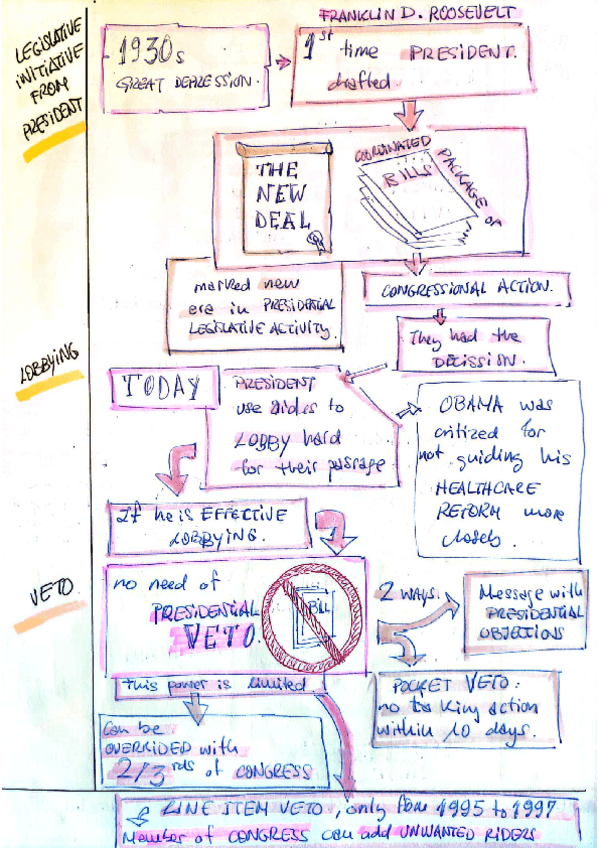 FRANKLIN D. ROOSEVELT
LEGISLATIVE
INITIATIVE
FROM
PRESIDENT
1930s
GREAT DEPRESSION.
1st time PRESIDENT.
drafted
THE
NEW
DEAL
COORDINATED
PACKAGE OF
BILLS
marked new
era in PRESIDENTIAL
LEGISLATIVE ACTIVITY.
CONGRESSIONAL ACTION.
They had the
DECISSION.
LOBBYING
TODAY
PRESIDENT
use aides to
LOBBY hard
for their passage
OBAMA was
critized for
not guiding his
HEALTHCARE
REFORM more
closely.
If he is EFFECTIVE
LOBBYING.
VETO
no need of
PRESIDENTIAL
VETO.
BILL
2 WAYS.
Message with
PRESIDENTIAL
OBJECTIONS
POCKET VETO:
no taking action
within 10 days.
This power is limited.
Can be
OVERRIDED with
2/3 rds of CONGRESS
LINE ITEM VETO, only from 1995 to 1997
Member of CONGRESS can add UNWANTED RIDERS